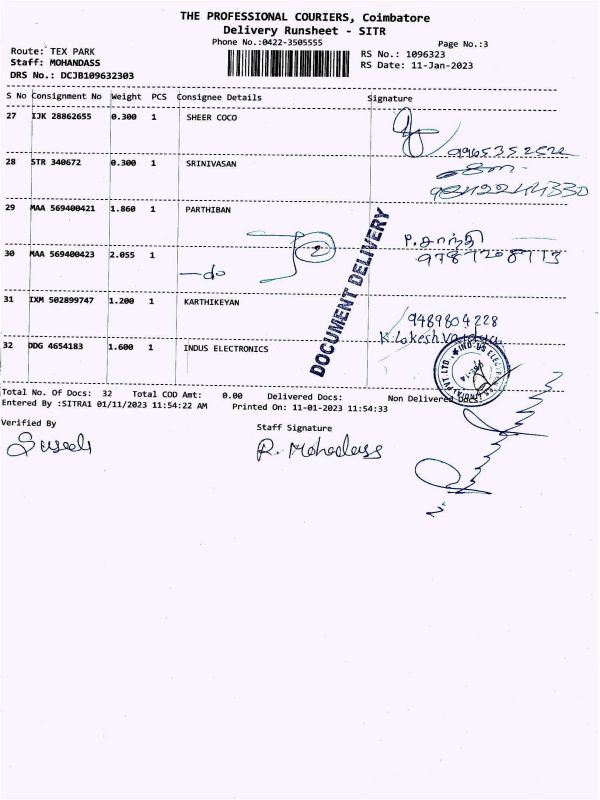 THE PROFESSIONAL COURIERS, Coimbatore
Delivery Runsheet - SITR
Phone No.:0422-3505555
Page No.:3
Route: TEX PARK
RS No.: 1096323
Staff: MOHANDASS
RS Date: 11-Jan-2023
DRS No.: DCJB109632303
S No Consignment No Weight PCS Consignee Details Signature
27 IJK 28862655 0.300 1 SHEER COCO
28 STR 340672 0.300 1 SRINIVASAN
29 MAA 569400421 1.860 1 PARTHIBAN
P.சாந்தி
30 MAA 569400423 2.055 1
—do 2
DOCUMENT DELIVERY
31 IXM 502899747 1.200 1 KARTHIKEYAN
9489804228
K.Lokesh
32 DDG 4654183 1.600 1 INDUS ELECTRONICS
Total No. Of Docs: 32 Total COD Amt: 0.00 Delivered Docs: Non Delivered Docs:
Entered By :SITRA1 01/11/2023 11:54:22 AM Printed On: 11-01-2023 11:54:33
Verified By
Staff Signature
R. Mohadass